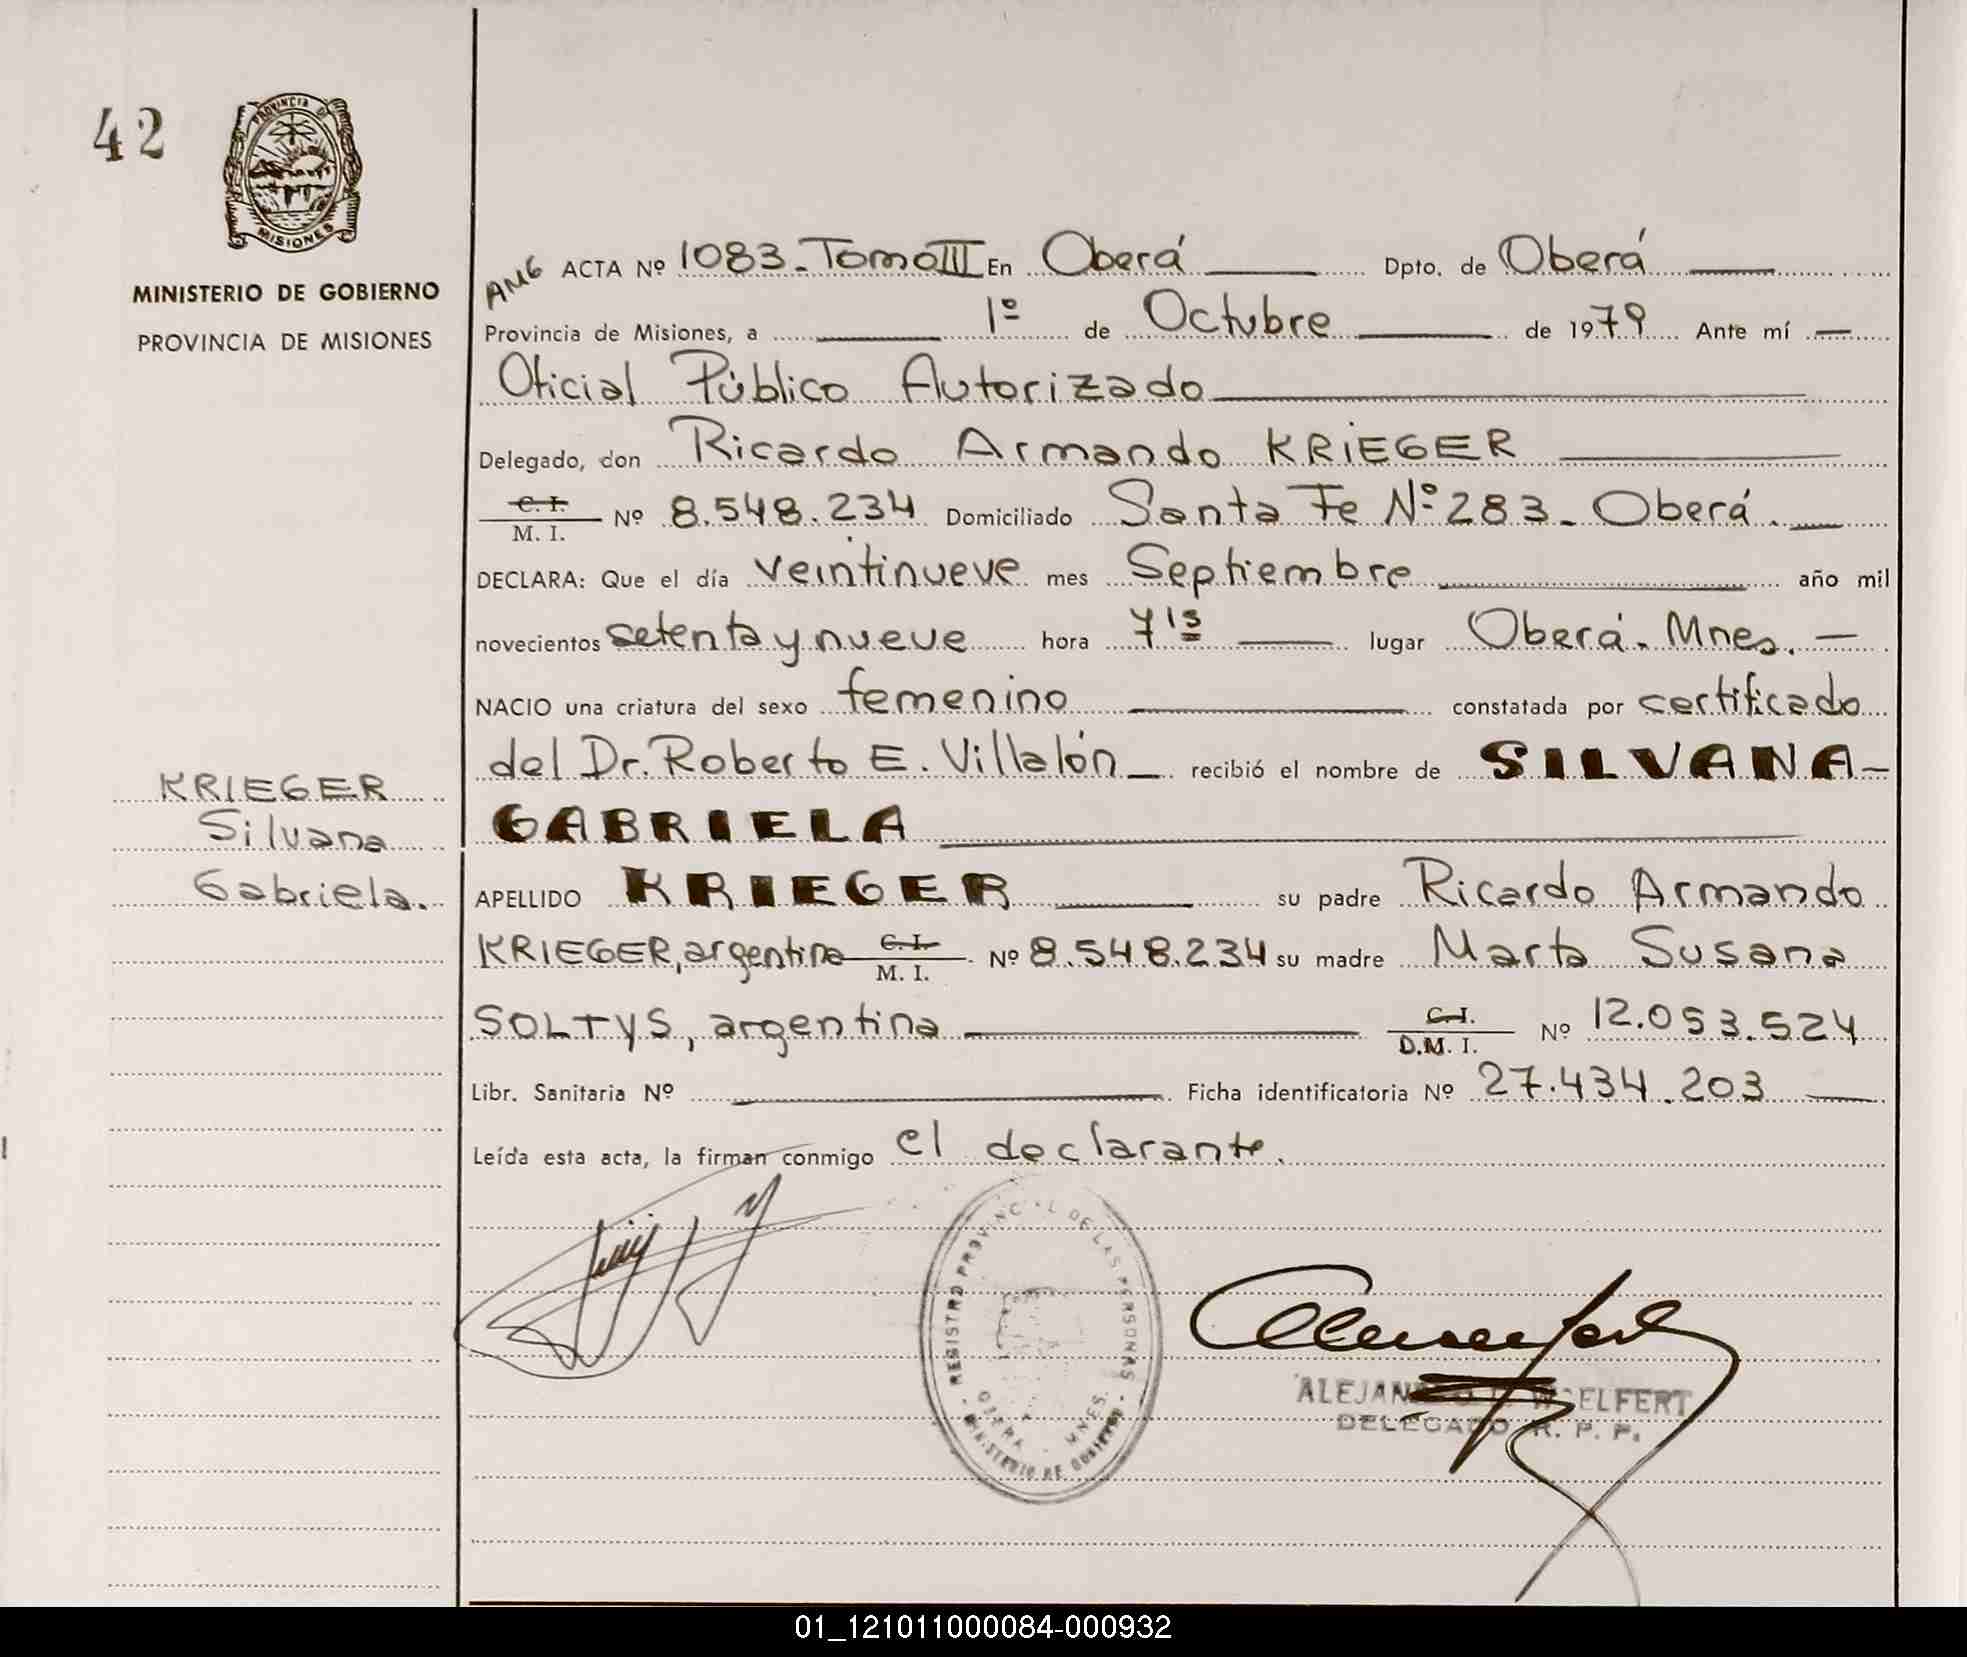 42
PROVINCIA DE
MISIONES
MINISTERIO DE GOBIERNO
PROVINCIA DE MISIONES
AMG ACTA Nº 1083 - Tomo III En Oberá Dpto. de Oberá
Provincia de Misiones, a 1º de Octubre de 1979 Ante mí
Oficial Público Autorizado
Delegado, don Ricardo Armando KRIEGER
C. I. / M. I. Nº 8.548.234 Domiciliado Santa Fe Nº 283 - Oberá.
DECLARA: Que el día veintinueve mes Septiembre año mil
novecientos setenta y nueve hora 7 15 lugar Oberá. Mnes.
NACIO una criatura del sexo femenino constatada por certificado
del Dr. Roberto E. Villalón recibió el nombre de SILVANA-
GABRIELA
KRIEGER
Silvana
Gabriela.
APELLIDO KRIEGER su padre Ricardo Armando
KRIEGER, argentina C. I. / M. I. Nº 8.548.234 su madre Marta Susana
SOLTYS, argentina C. I. / D.M. I. Nº 12.053.524
Libr. Sanitaria Nº Ficha identificatoria Nº 27.434.203
Leída esta acta, la firman conmigo el declarante.
REGISTRO PROVINCIAL DE LAS PERSONAS
OBERA - MNES.
MINISTERIO DE GOBIERNO
WOELFERT
DELEGADO R. P. P.
01_121011000084-000932